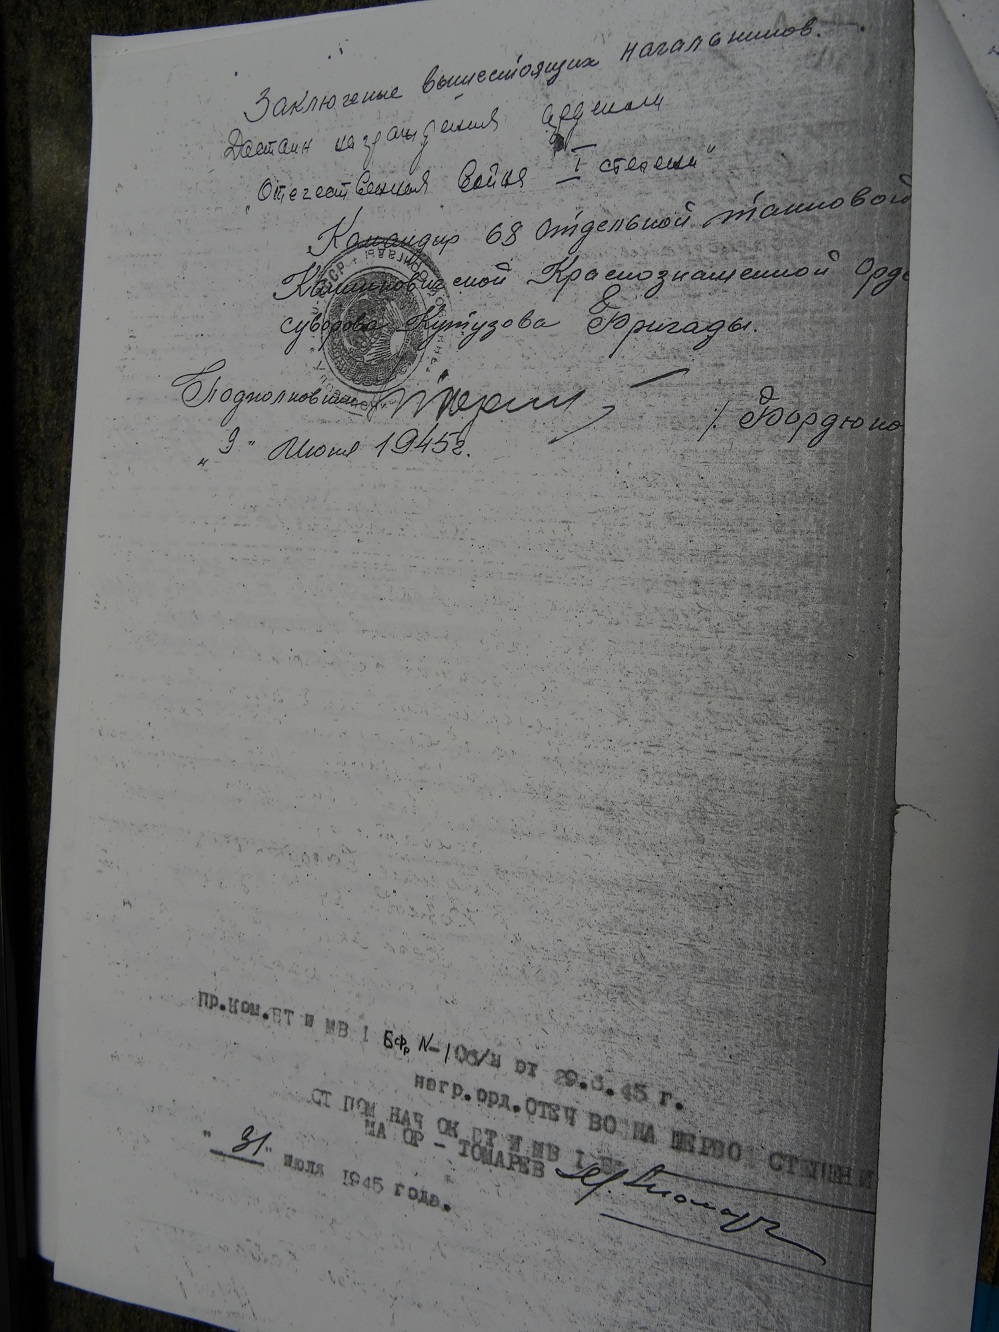 Заключение вышестоящих начальников.
Достоин награждения орденом
„Отечественная Война I степени"
Командир 68 отдельной танковой
Калинковической Краснознаменной Орде
суворова Кутузова Бригады.
Подполковник / Бордюко
„9" Июня 1945г.
Пр.Ком.БТ и МВ I БФр №-106/н от 29.6.45 г.
нагр.орд.ОТЕЧ ВОЙНА ПЕРВОЙ СТЕПЕНИ
СТ ПОМ НАЧ ОК БТ И МВ I БФ
МА ОР - ТОМАРЕВ
"31" июля 1945 года.